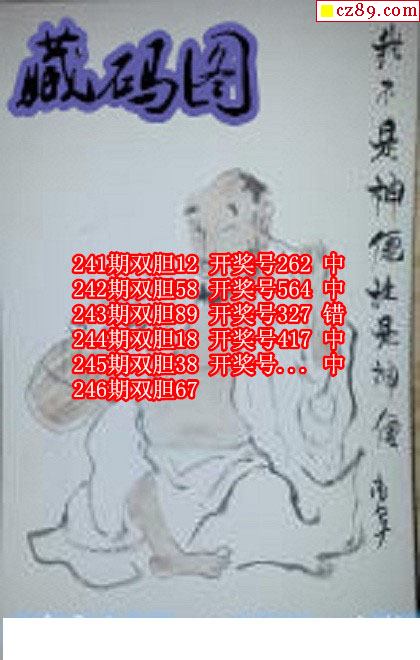 cz89.com
藏码图
我不是神僊
241期双胆12 开奖号262 中
242期双胆58 开奖号564 中
243期双胆89 开奖号327 错
244期双胆18 开奖号417 中
245期双胆38 开奖号... 中
246期双胆67